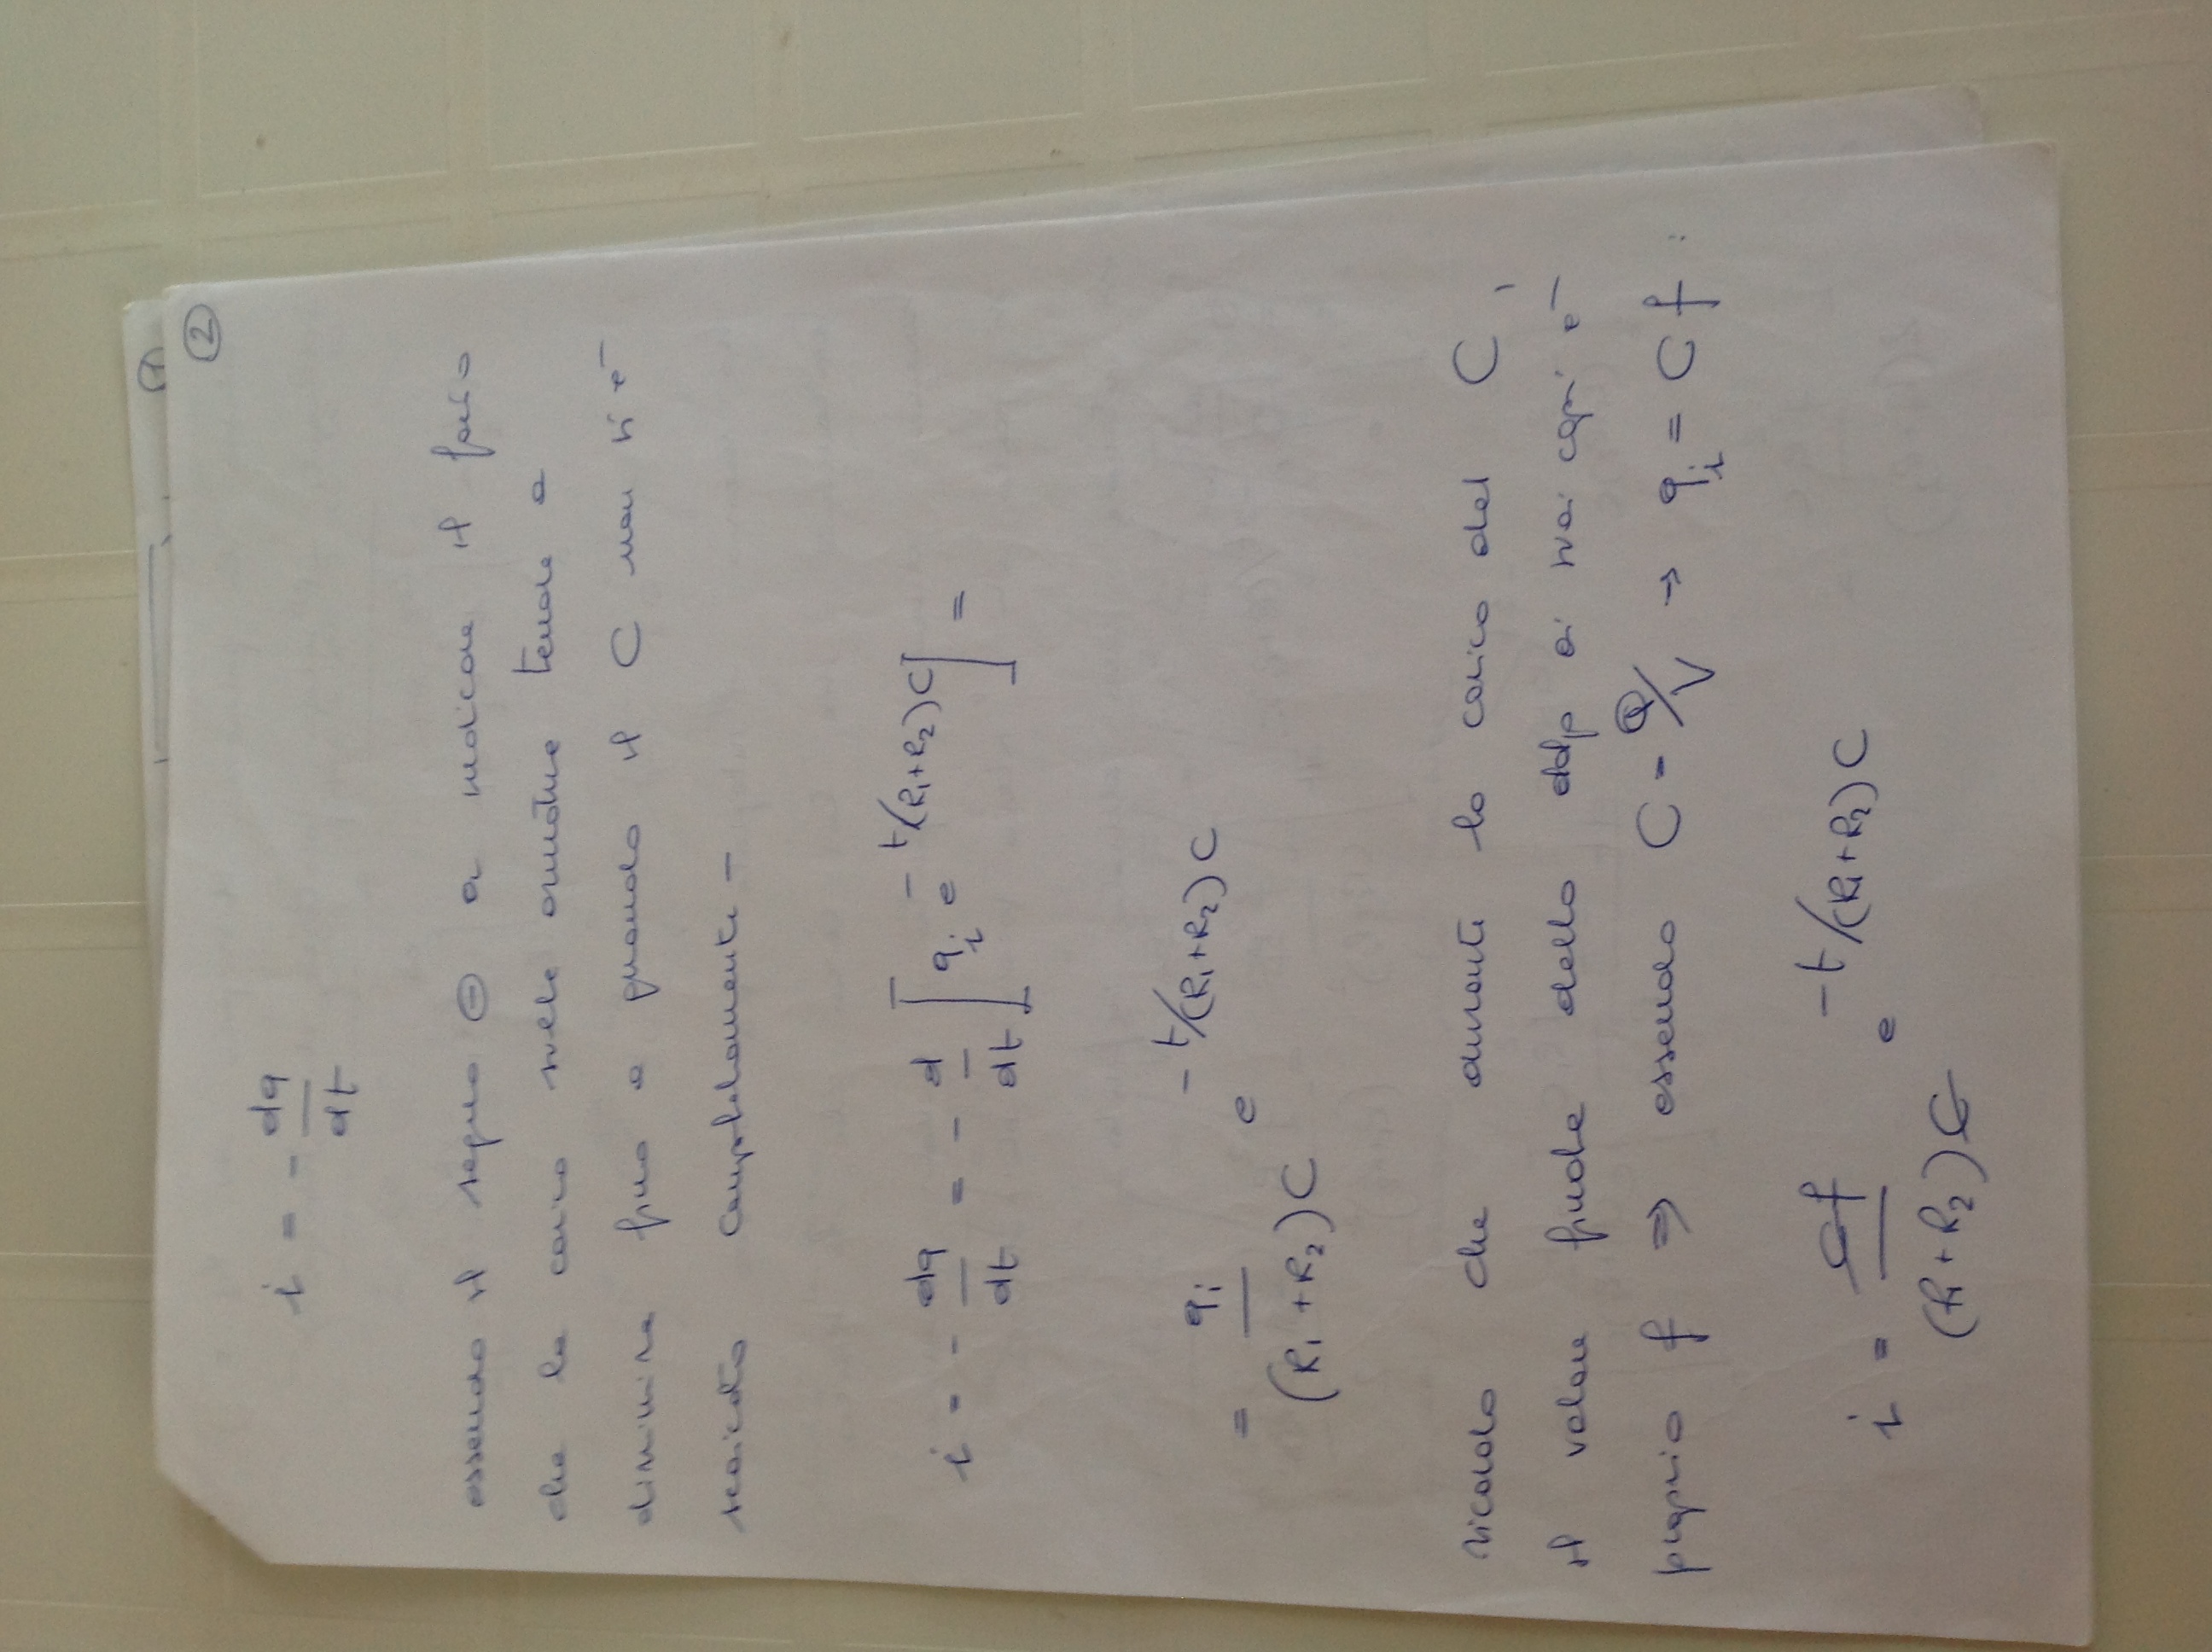 1
2
i = - dq/dt
essendo il segno ⊖ a indicare il fatto
che la carica sulle armature tende a
diminuire fino a quando il C non si è
scaricato completamente -
i = - dq/dt = - d/dt [ q_i e^(-t/(R₁+R₂)C) ] =
= q_i/((R₁+R₂)C) e^(-t/(R₁+R₂)C)
ricordo che durante la carica del C,
il valore finale della ddp ai suoi capi è
proprio f ⇒ essendo C = Q/V → q_i = C f :
i = Cf/((R₁+R₂)C) e^(-t/(R₁+R₂)C)